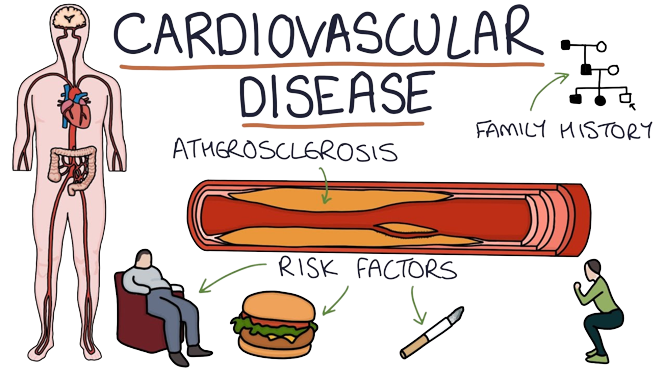 CARDIOVASCULAR
DISEASE
FAMILY HISTORY
ATHEROSCLEROSIS
RISK FACTORS